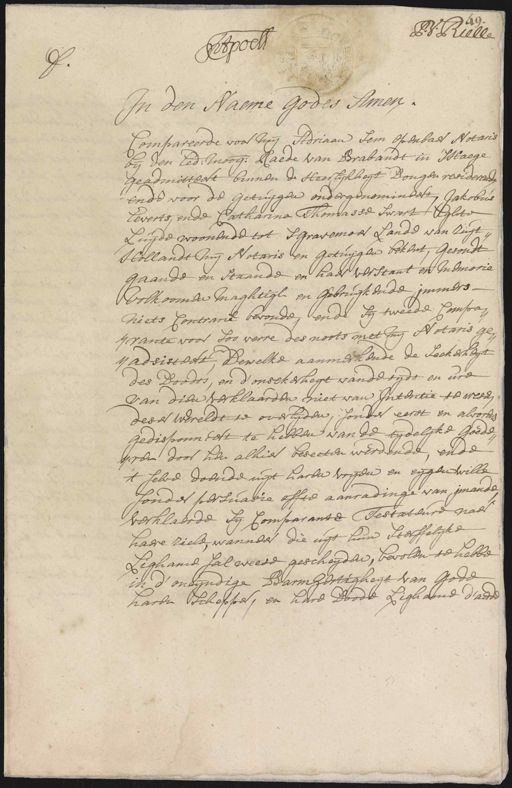 49.
In den Naeme Godes Amen.
Compareerde voor my Adriaan openbaer Notaris
by den Ed: Raede van Brabandt in Hage
geadmitteert binnen de Heerlykheyt Dongen resideerende
ende voor de getuygen ondergenomineert, Jakobus
Everts, ende Catharina Thomasse Swart Egte
Luyde woonende tot 'S Gravemoer Lande van Zuyt-
Hollandt my Notaris en getuygen bekent, Gesondt
gaande en Staande en haer verstant en Memorie
volkoomen maghtigh en Gebruykende immers
niets Contrarie bevonde, ende Sy tweede Compa-
rante voor Soo verre des noots met my Notaris ge-
adsisteert, Dewelke aanmerkende de Seekerheyt
des Doodts, en d'onsekerheyt van de tydt en ure
van dien verklaarden niet van Intentie te weesen
deese Wereldt te overlyden, Sonder eerst en alvorens
gedisponeert te hebben van de tydelyke Goede-
ren door hun alhier beseeten werdende, ende
't selve doende uyt haren vryen en eygen wille
Sonder persuasie ofte aanradinge van jmande
verklaarde Sy Comparante Testateure naer
haere Ziele, wanneer die uyt hun Sterffelyke
Lighame Sal weese gescheyden, bevolen te hebbe
in d'oneyndige Barmhertigheyt van Gode
haren Schepper, en hare Doode Lighame d'aarde